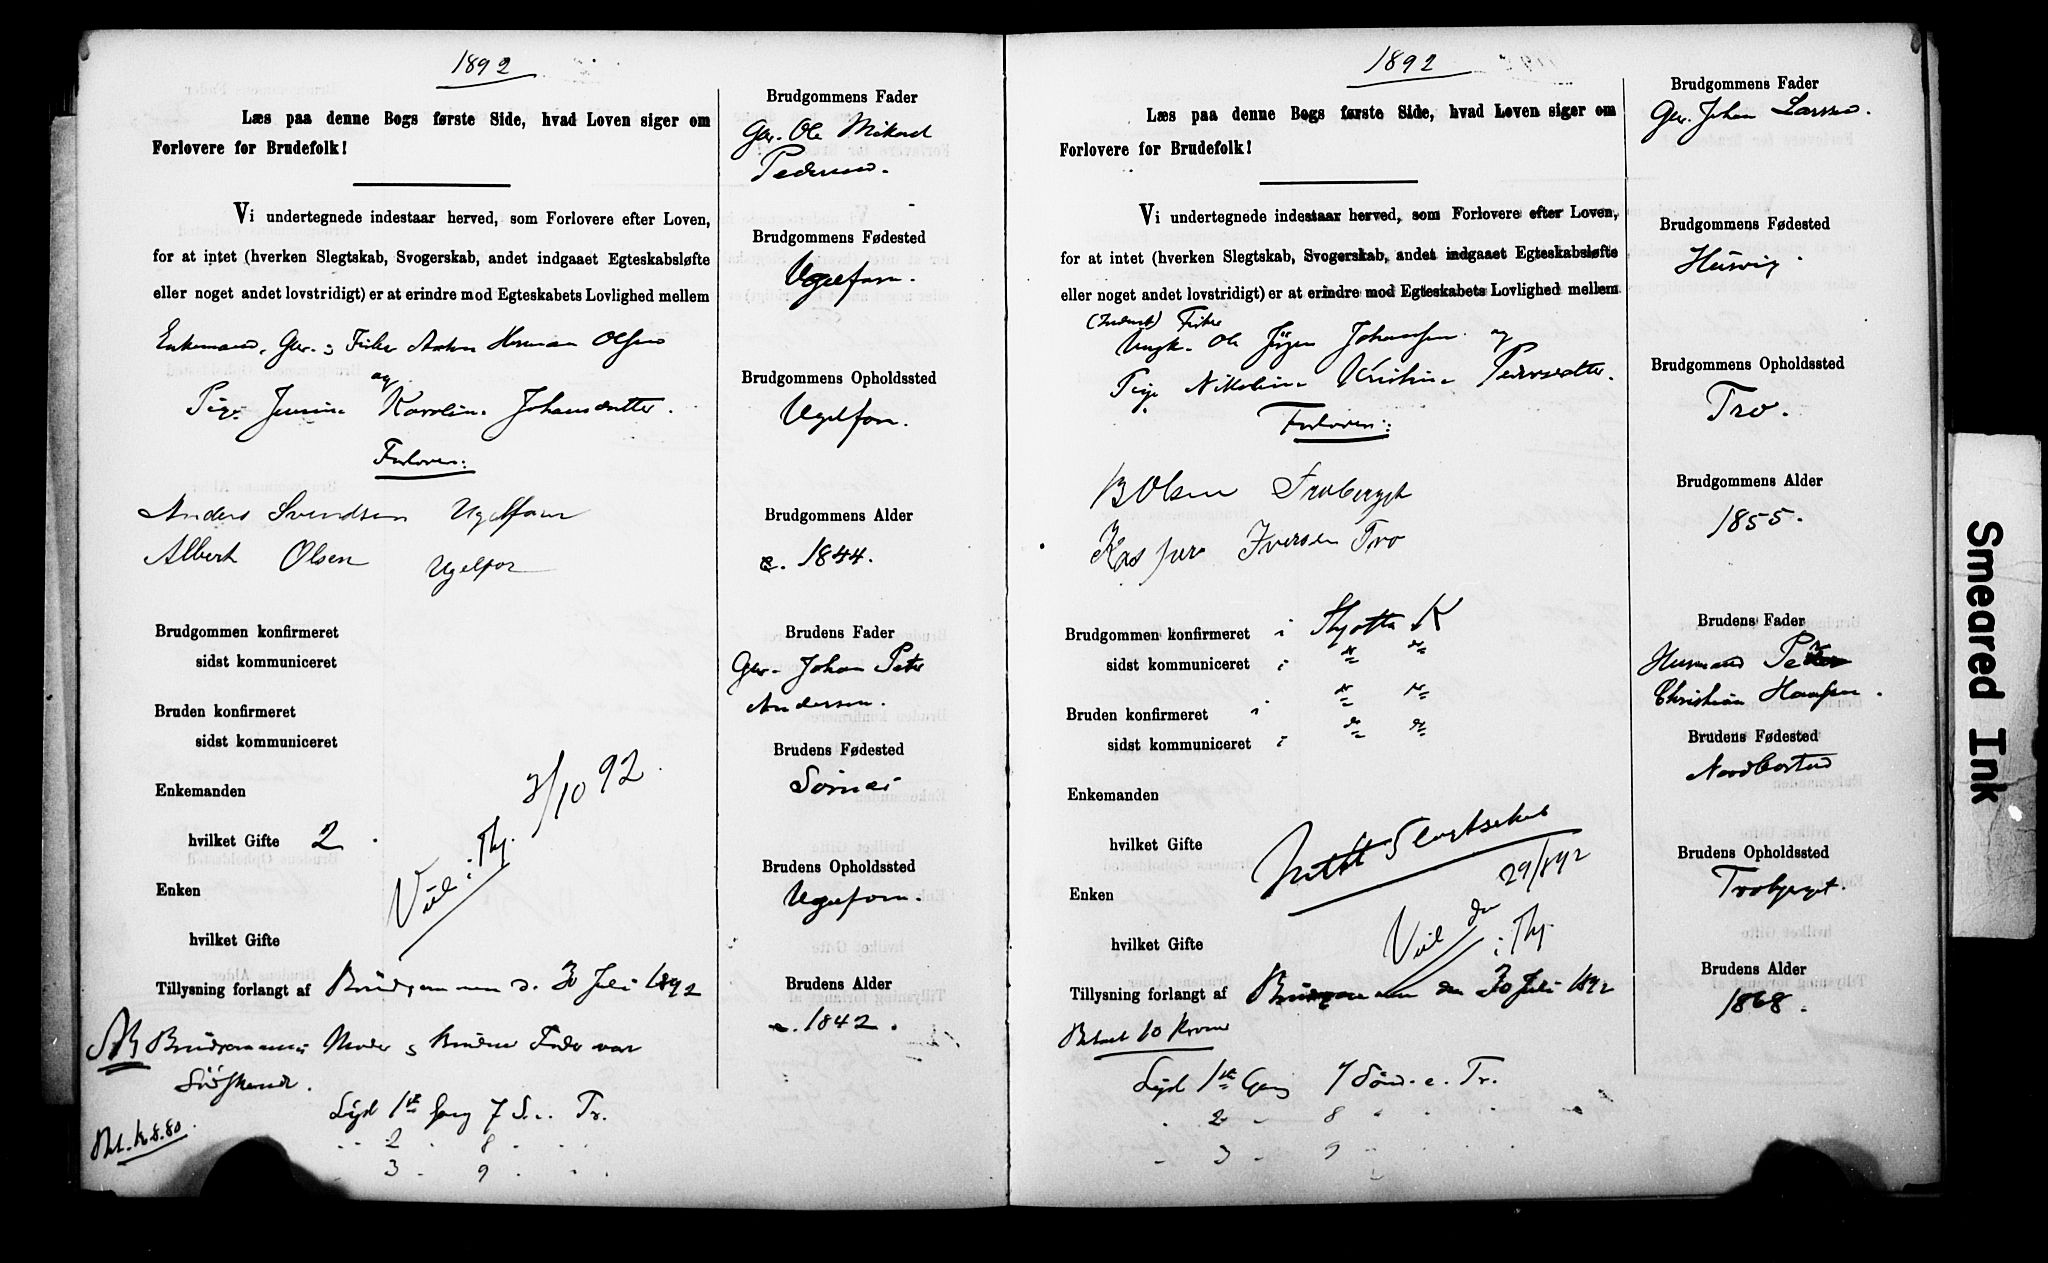 1892
Læs paa denne Bogs første Side, hvad Loven siger om
Forlovere for Brudefolk!
Vi undertegnede indestaar herved, som Forlovere efter Loven,
for at intet (hverken Slegtskab, Svogerskab, andet indgaaet Egteskabsløfte
eller noget andet lovstridigt) er at erindre mod Egteskabets Lovlighed mellem
Enkemand, Gbr. & Fisker Anton Herman Olsen
og
Pige Karolin Johansdatter.
Forlovere:
Anders Svendsen Ugelfor
Albert Olsen Ugelfor
Brudgommen konfirmeret
sidst kommuniceret
Bruden konfirmeret
sidst kommuniceret
Enkemanden
hvilket Gifte 2
Enken
hvilket Gifte
/10 92.
Viel i Thj.
Tillysning forlangt af Brudgommen d. 30 Juli 1892
NB Brudgommens Moder & Brudens Fader var
Sødskende.
Bet. k. 8.80
Lyd 1ste Gang 7 S. e. Tr.
2 - 8 -
3 - 9 -
Brudgommens Fader
Gbr. Ole Mikael
Pedersen.
Brudgommens Fødested
Ugelforn.
Brudgommens Opholdssted
Ugelforn.
Brudgommens Alder
1844.
Brudens Fader
Gbr. Johan Peter
Andersen.
Brudens Fødested
Sørnes
Brudens Opholdssted
Ugelforn.
Brudens Alder
1842.
1892
Læs paa denne Bogs første Side, hvad Loven siger om
Forlovere for Brudefolk!
Vi undertegnede indestaar herved, som Forlovere efter Loven,
for at intet (hverken Slegtskab, Svogerskab, andet indgaaet Egteskabsløfte
eller noget andet lovstridigt) er at erindre mod Egteskabets Lovlighed mellem
Fisker
Ungk. Ole Jørgen Johansen og
Pige Nikoline Kristine Pedersdatter.
Forlovere:
B Olsen Trobergst
Kasper Iversen Tro
Brudgommen konfirmeret i Thjøtta K
sidst kommuniceret i
Bruden konfirmeret i
sidst kommuniceret i
Enkemanden
hvilket Gifte
Enken
hvilket Gifte
Intet Slegtskab
29/8 92
Viel i Thj.
Tillysning forlangt af Brudgommen den 30 Juli 1892
Betalt 10 Kroner
Lyd 1ste Gang 7 Sønd. e. Tr.
2 - 8
- 3 - 9
Brudgommens Fader
Gbr. Johan Larsen.
Brudgommens Fødested
Husvig.
Brudgommens Opholdssted
Tro.
Brudgommens Alder
1855.
Brudens Fader
Husmand Peder
Christian Hansen.
Brudens Fødested
Brudens Opholdssted
Trobjerget.
Brudens Alder
1868.
Smeared Ink